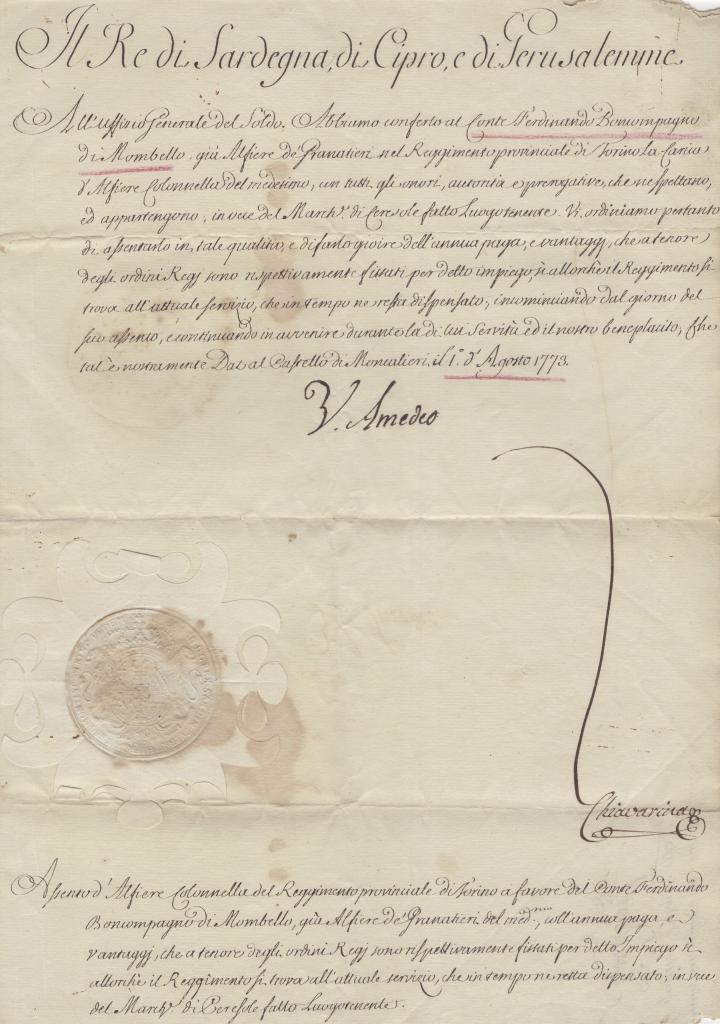 Il Re di Sardegna, di Cipro, e di Gerusalemme
All'uffizio Generale del Soldo. Abbiamo conferto al Conte Ferdinando Boncompagno
di Mombello già Alfiere de' Granatieri nel Reggimento provinciale di Torino la Carica
d'Alfiere Colonnella del medesimo, con tutti gli onori, autorità e prerogative, che ne spettano,
ed appartengono, in vece del March.^e di Ceresole fatto Luogotenente. Vi ordiniamo pertanto
di assentarlo in tale qualità, e di farlo gioire dell'annua paga, e vantaggj, che a tenore
degli ordini Regj sono rispettivamente fissati per detto impiego, sì allorchè il Reggimento si
trova all'attuale servizio, che in tempo ne resta dispensato, incominciando dal giorno del
suo assento, e continuando in avvenire durante la di lui Servitù ed il nostro beneplacito, Che
tal è nostra mente Dat. al Castello di Moncalieri il 1.° d'Agosto 1773.
V. Amedeo
Chiavarina
Assento d'Alfiere Colonnella del Reggimento provinciale di Torino a favore del Conte Ferdinando
Boncompagno di Mombello, già Alfiere de' Granatieri del med.^mo, coll'annua paga, e
vantaggj, che a tenore degli ordini Regj sono rispettivamente fissati per detto Impiego sì
allorchè il Reggimento si trova all'attuale servizio, che in tempo ne resta dispensato, in vece
del March.^e di Ceresole fatto Luogotenente.